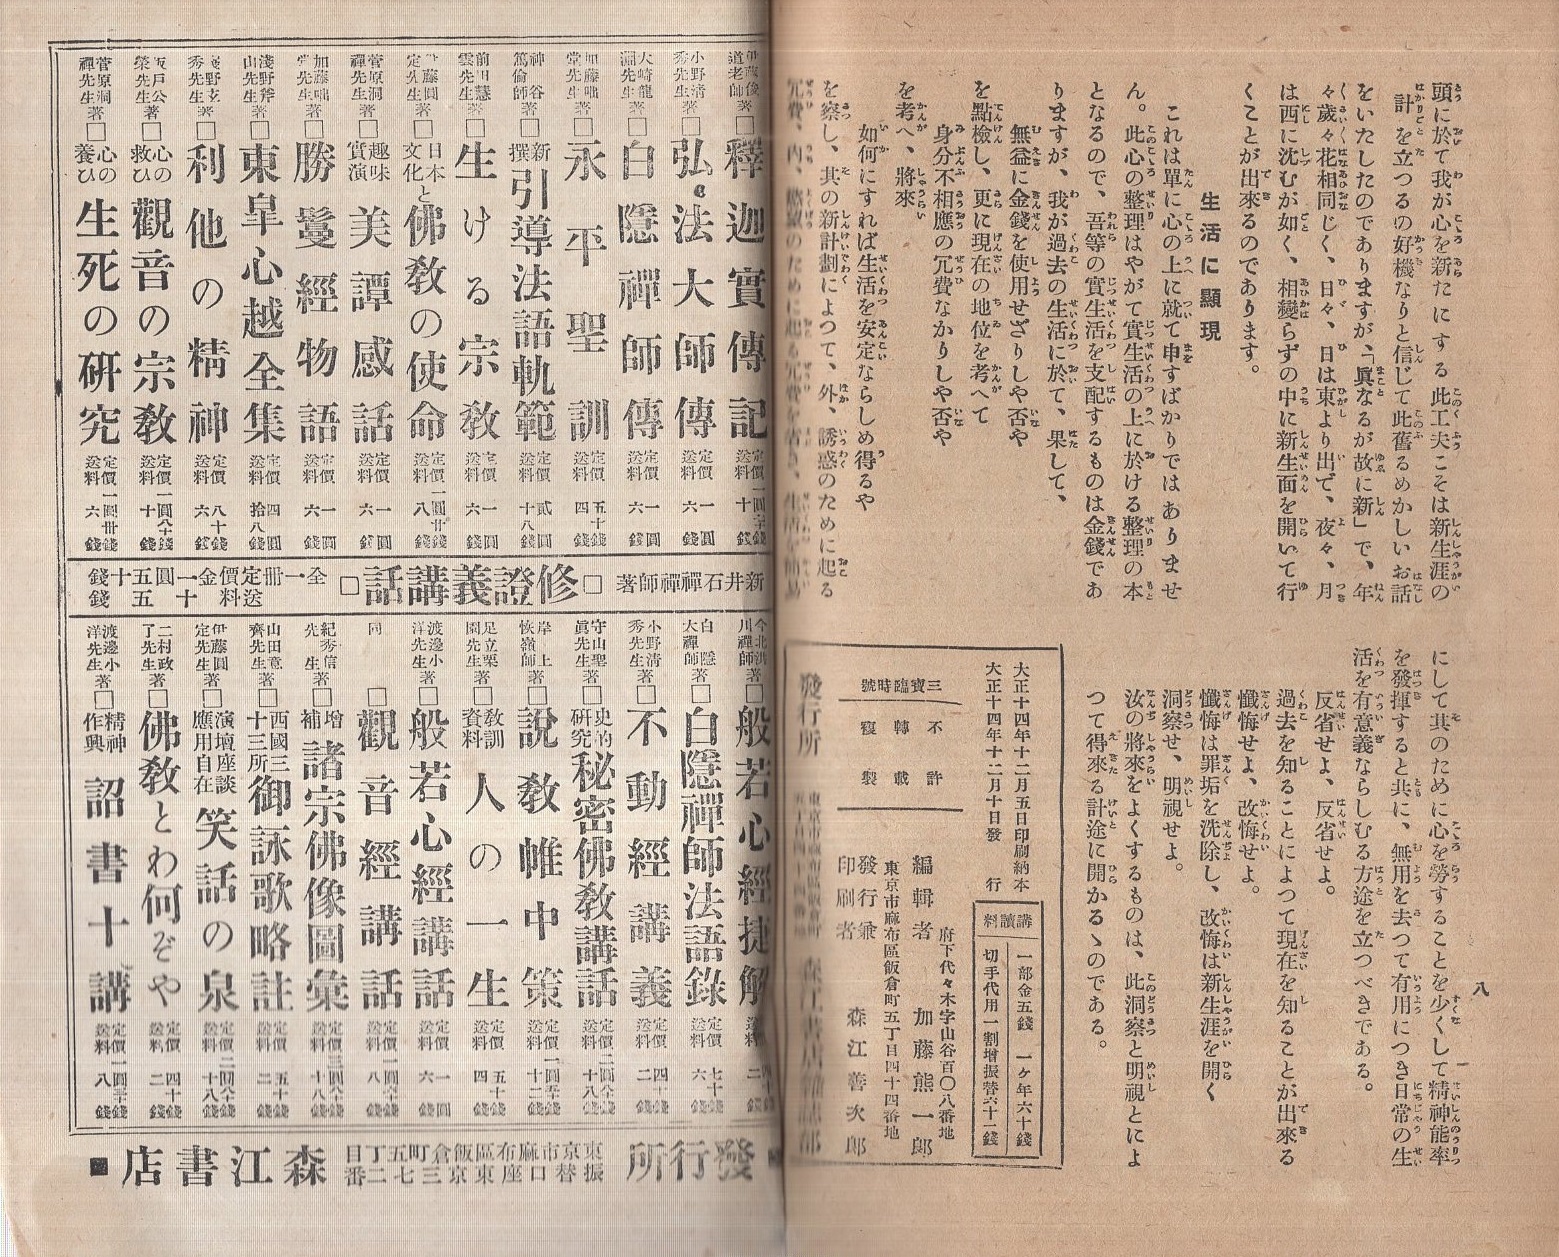 頭に於て我が心を新たにする此工夫こそは新生涯の
計を立つるの好機なりと信じて此舊るめかしいお話
をいたしたのでありますが、「眞なるが故に新」で、年
々歲々花相同じく、日々、日は東より出で、夜々、月
は西に沈むが如く、相變らずの中に新生面を開いて行
くことが出來るのであります。
生活に顯現
これは單に心の上に就て申すばかりではありませ
ん。此心の整理はやがて實生活の上に於ける整理の本
となるので、吾等の實生活を支配するものは金錢であ
りますが、我が過去の生活に於て、果して、
無益に金錢を使用せざりしや否や
を點檢し、更に現在の地位を考へて
身分不相應の冗費なかりしや否や
を考へ、將來
如何にすれば生活を安定ならしめ得るや
を察し、其の新計劃によつて、外、誘惑のために起る
にして其のために心を勞することを少くして精神能率
を發揮すると共に、無用を去つて有用につき日常の生
活を有意義ならしむる方途を立つべきである。
反省せよ、反省せよ。
過去を知ることによつて現在を知ることが出來る
懺悔せよ、改悔せよ。
懺悔は罪垢を洗除し、改悔は新生涯を開く
洞察せ、明視せよ。
汝の將來をよくするものは、此洞察と明視とによ
つて得來る計途に開かるゝのである。
八
大正十四年十二月五日印刷納本
大正十四年十二月十日發行
三寶臨時號
不許
轉載
複製
講讀料
一部金五錢 一ケ年六十錢
切手代用一割增振替六十二錢
府下代々木字山谷百〇八番地
編輯者 加藤熊一郎
東京市麻布區飯倉町五丁目四十四番地
發行兼
印刷者 森江善次郎
發行所 森江書店雜誌部
釋迦實傳記
小野清秀先生著□弘法大師傳 定價一圓 送料六錢
大崎龍淵先生著□白隱禪師傳 定價一圓 送料六錢
加藤咄堂先生著□永平聖訓 定價五十錢 送料四錢
神谷篤倫師著□新撰引導法語軌範 定價貳圓 送料十八錢
前田慧雲先生著□生ける宗敎 定價一圓 送料六錢
定先生著□日本文化と佛敎の使命
菅原洞禪先生著□趣味實演美譚感話 定價一圓 送料六錢
加藤咄堂先生著□勝鬘經物語 定價一圓 送料六錢
淺野斧山先生著□東皐心越全集 定價四圓 送料拾八錢
秀先生著□利他の精神 定價八十錢 送料六錢
榮先生著□心の救ひ觀音の宗敎 定價一圓八十錢 送料十錢
菅原洞禪先生著□心の養ひ生死の研究 定價一圓卅錢 送料六錢
新井石禪禪師著□修證義講話□全一冊定價金一圓五十錢送料十五錢
今北洪川禪師著□般若心經捷解
白隱大禪師著□白隱禪師法語錄 定價七十錢 送料六錢
小野清秀先生著□不動經講義 定價四十錢 送料二錢
守山聖眞先生著□史的研究秘密佛敎講話 送料十八錢
岸上恢嶺師著□說敎帷中策 送料十二錢
足立栗園先生著□敎訓資料人の一生 定價五十錢 送料四錢
渡邊小洋先生著□般若心經講話 定價一圓 送料六錢
同□觀音經講話 送料八錢
紀秀信先生著□增補諸宗佛像圖彙 送料十八錢
山田意齊先生著□西國三十三所御詠歌略註 定價五十錢 送料二錢
伊藤圓定先生著□演壇座談應用自在笑話の泉 送料十八錢
二村政了先生著□佛敎とわ何ぞや 定價四十錢 送料二錢
渡邊小洋先生著□精神作興詔書十講 送料八錢
發行所 東京市麻布區飯倉町五丁目 振替口座東京三七二番 森江書店